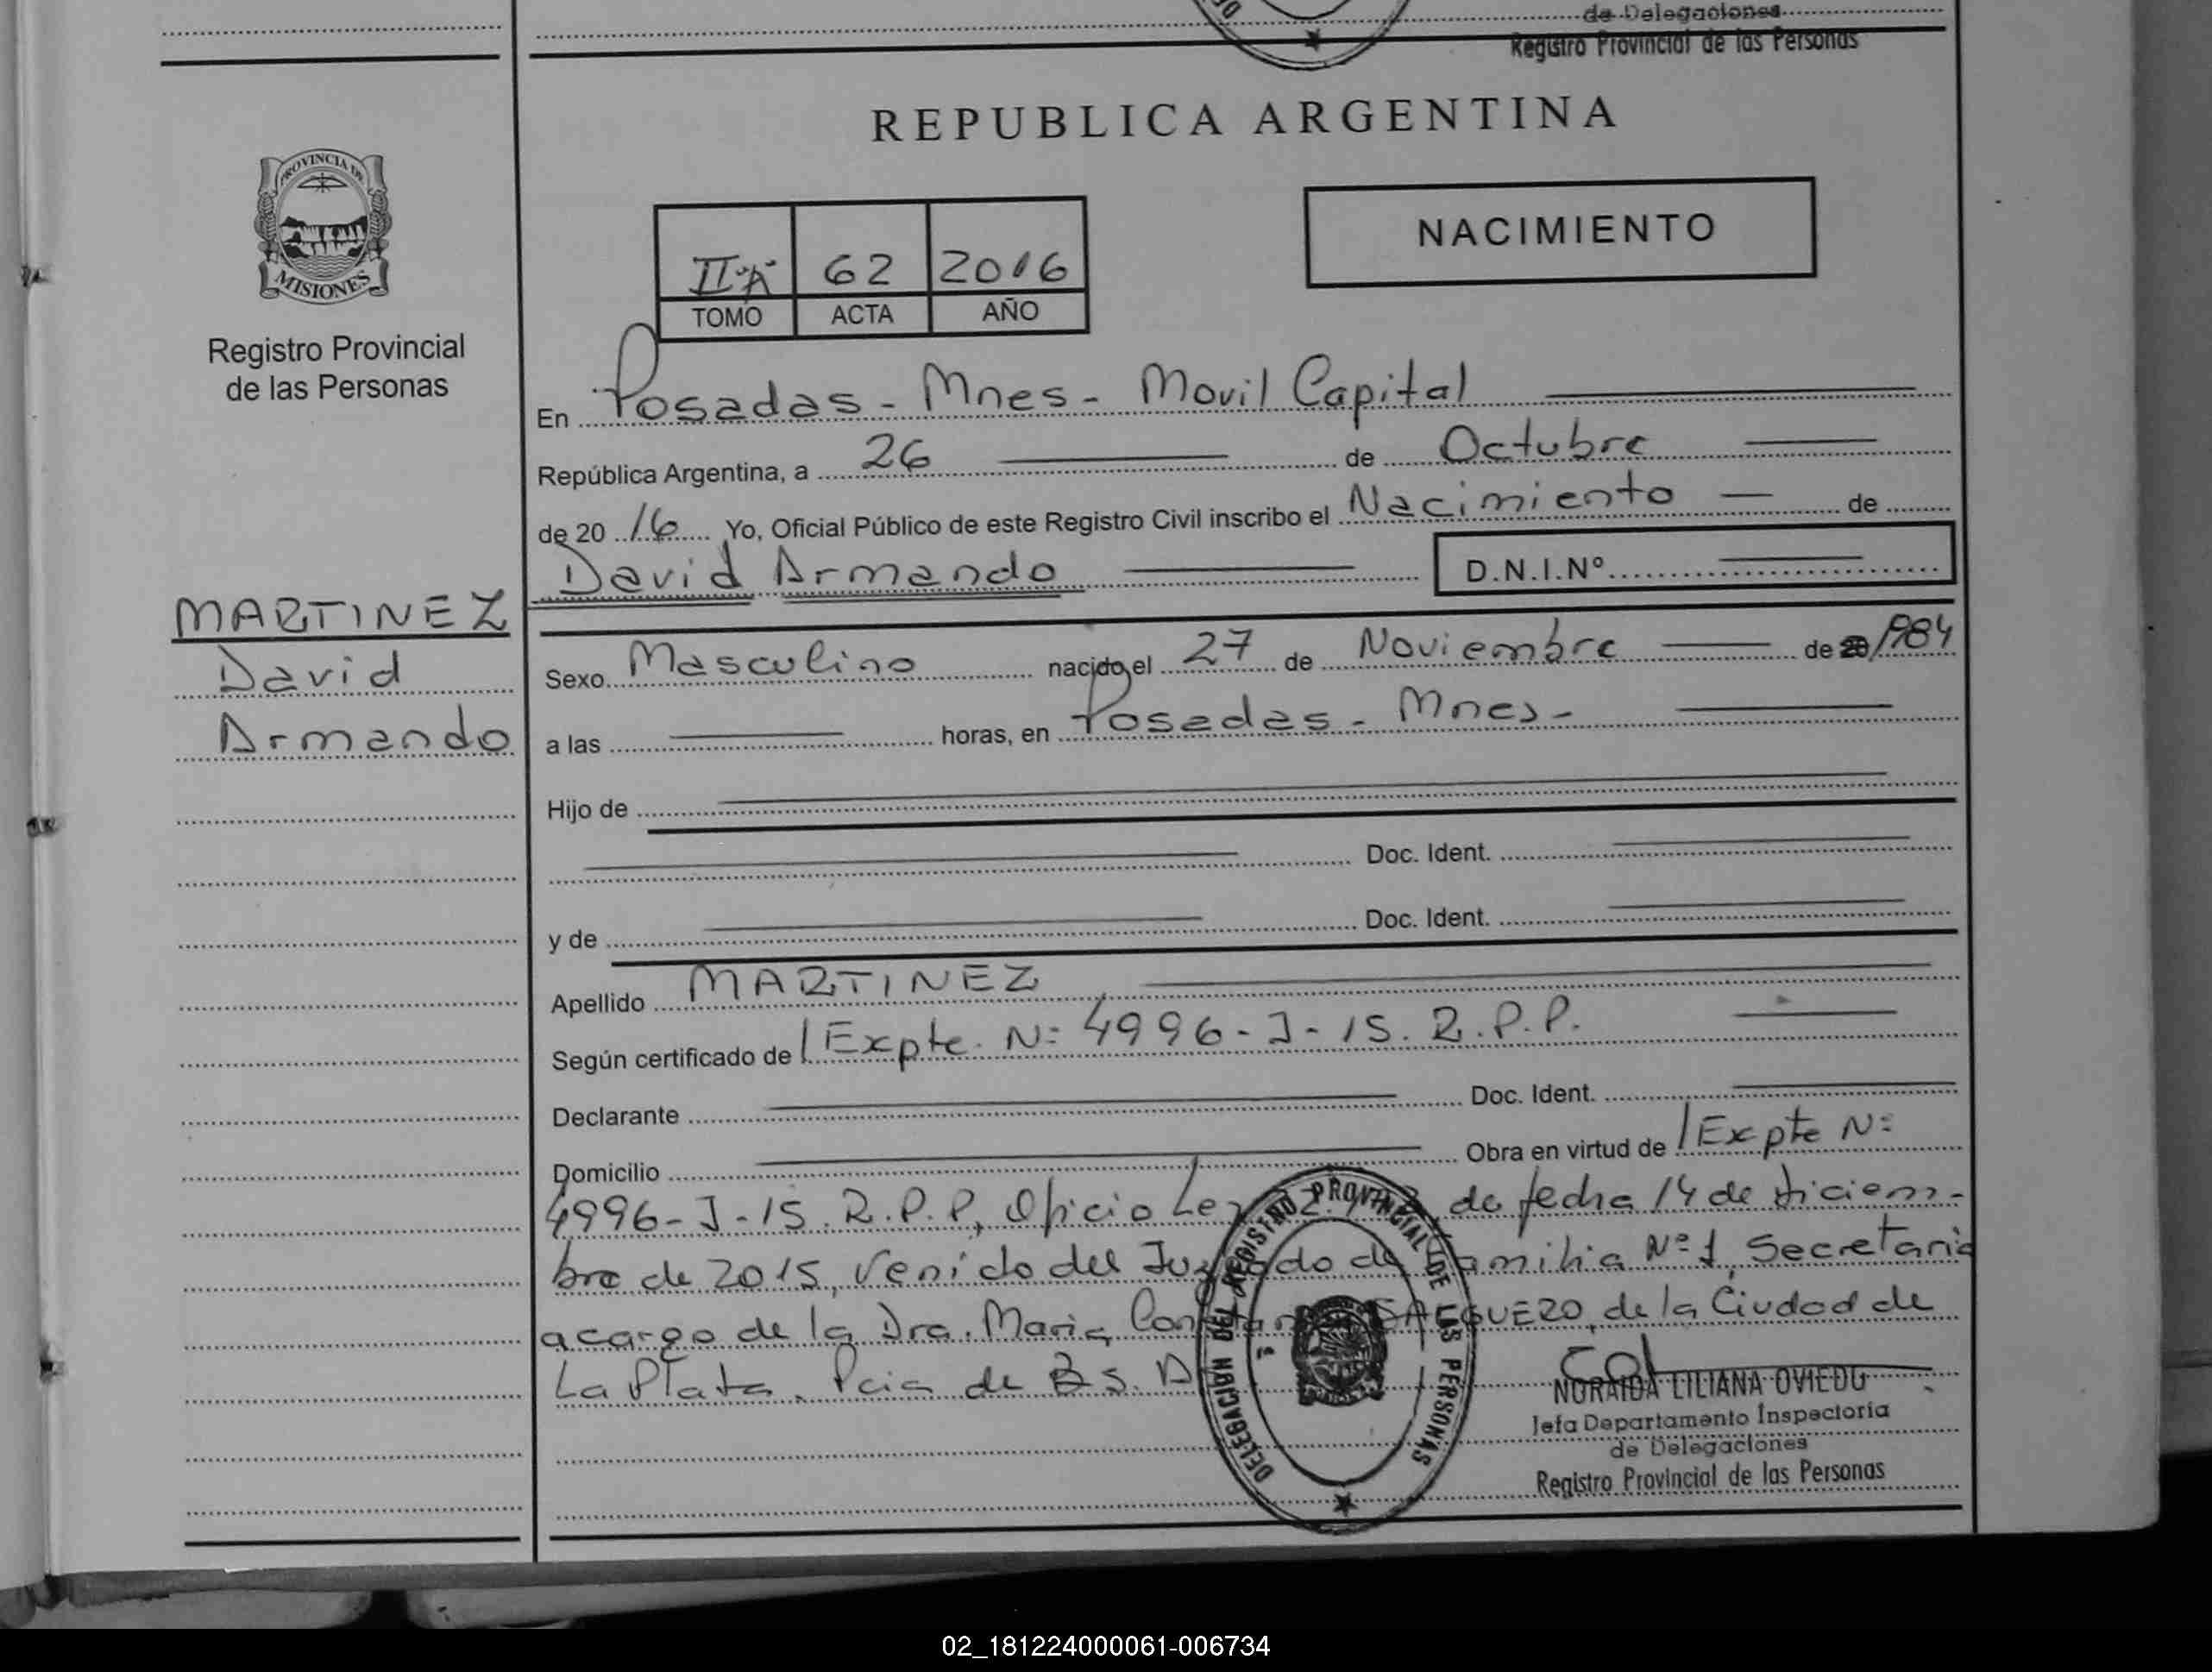 de Delegaciones
Registro Provincial de las Personas
PROVINCIA DE
MISIONES
Registro Provincial
de las Personas
REPUBLICA ARGENTINA
NACIMIENTO
II"A" 62 2016
TOMO ACTA AÑO
En Posadas - Mnes - Movil Capital
República Argentina, a 26 de Octubre
de 20 16 Yo, Oficial Público de este Registro Civil inscribo el Nacimiento de
David Armando D.N.I.Nº
MARTINEZ
David
Armando
Sexo Masculino nacido el 27 de Noviembre de 1984
a las horas, en Posadas - Mnes -
Hijo de
Doc. Ident.
y de Doc. Ident.
Apellido MARTINEZ
Según certificado de Expte. Nº 4996-J-15. R.P.P.
Declarante Doc. Ident.
Domicilio Obra en virtud de Expte Nº
4996-J-15. R.P.P, Oficio Ley de fecha 14 de diciem-
bre de 2015, venido del Juzgado de Familia Nº 1, Secretaria
a cargo de la Dra. Maria de la Ciudad de
La Plata, Pcia de Bs. A
DELEGACION DEL REGISTRO PROVINCIAL DE LAS PERSONAS
NORAIDA LILIANA OVIEDO
Jefa Departamento Inspectoría
de Delegaciones
Registro Provincial de las Personas
02_181224000061-006734